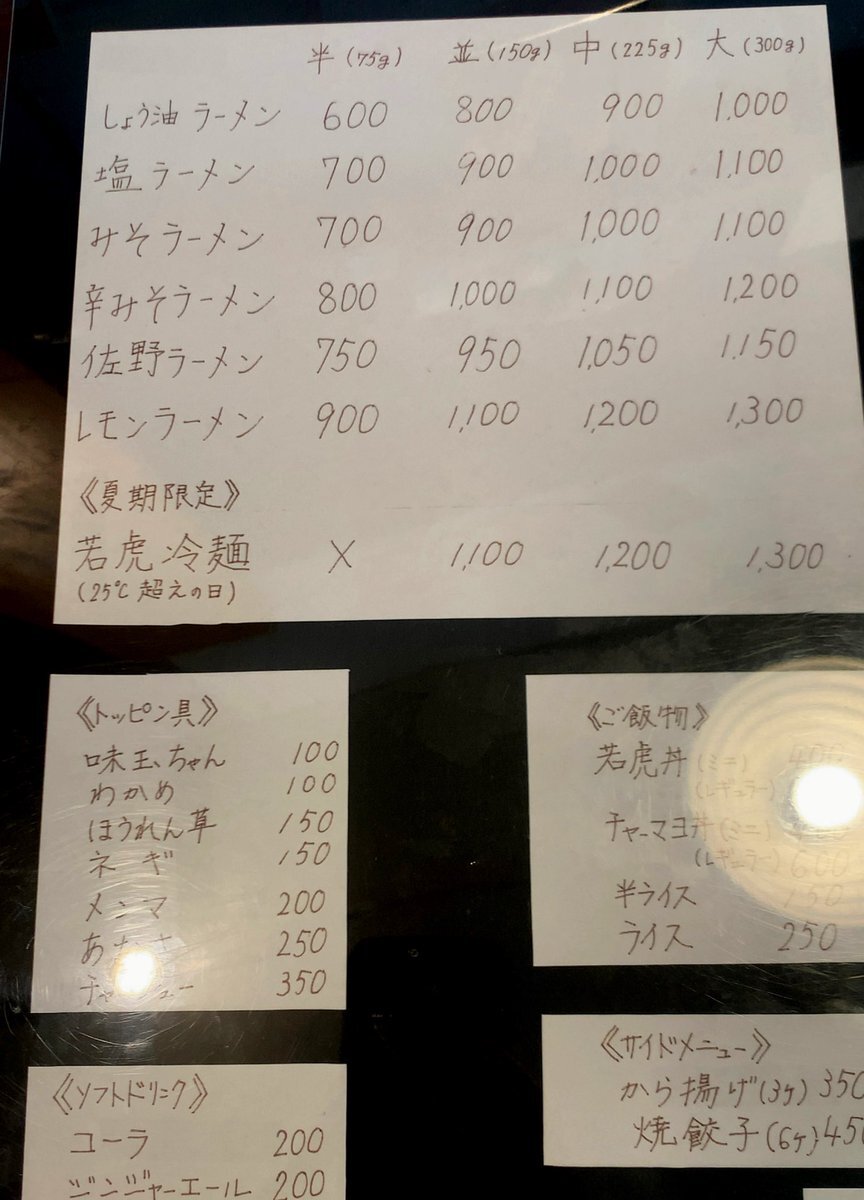 半(75g) 並(150g) 中(225g) 大(300g)
しょう油ラーメン 600 800 900 1,000
塩ラーメン 700 900 1,000 1,100
みそラーメン 700 900 1,000 1,100
辛みそラーメン 800 1,000 1,100 1,200
佐野ラーメン 750 950 1,050 1,150
レモンラーメン 900 1,100 1,200 1,300
《夏期限定》
若虎冷麺 X 1,100 1,200 1,300
(25℃超えの日)
《トッピン具》
味玉ちゃん 100
わかめ 100
ほうれん草 150
ネギ 150
メンマ 200
250
350
《ご飯物》
若虎丼(ミニ) 400
(レギュラー)
チャーマヨ丼(ミニ)
(レギュラー) 600
半ライス 150
ライス 250
《サイドメニュー》
から揚げ(3ヶ) 350
焼餃子(6ヶ) 450
《ソフトドリンク》
コーラ 200
ジンジャーエール 200